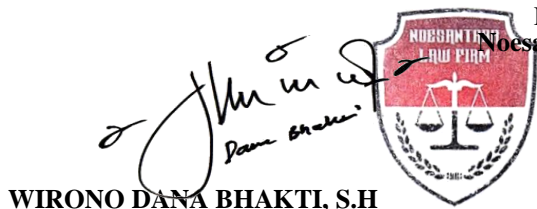 NOESANTARA
LAW FIRM
Noesa
Dana Bhakti
WIRONO DANA BHAKTI, S.H